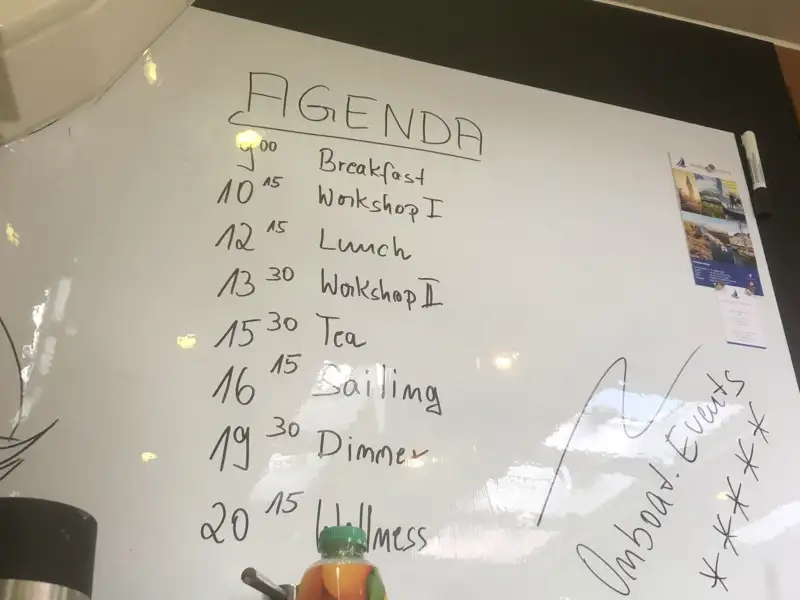 AGENDA
9 00 Breakfast
10 15 Workshop I
12 15 Lunch
13 30 Workshop II
15 30 Tea
16 15 Sailing
19 30 Dinner
20 15 Wellness
Onboat.Events
*****